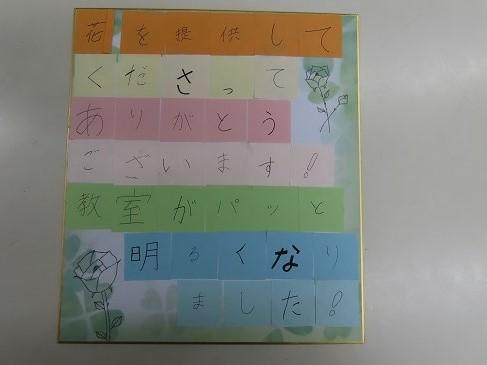 花を提供して
くださって
ありがとう
ございます!
教室がパッと
明るくなり
ました!